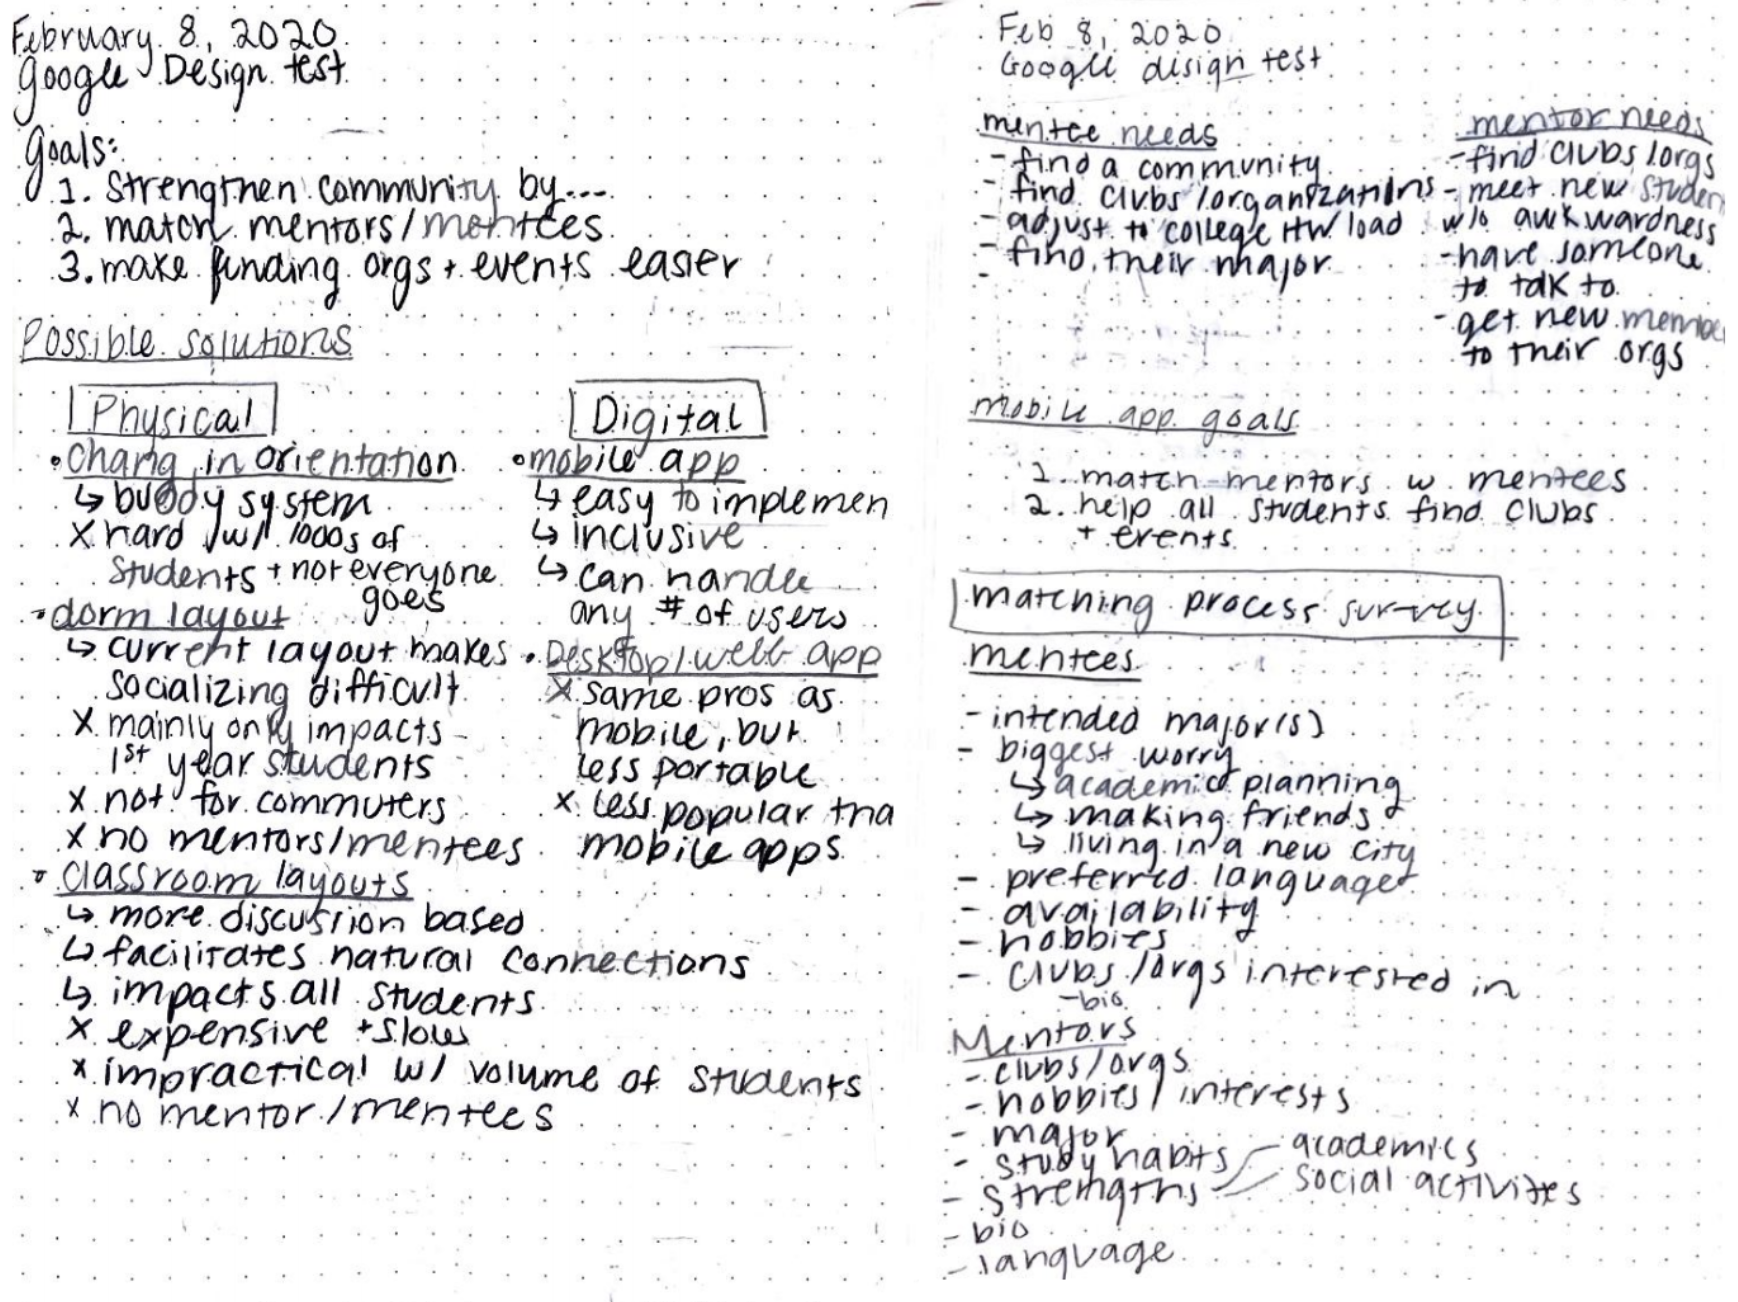 February 8, 2020
Google Design test
Goals:
1. Strengthen community by...
2. match mentors/mentees
3. make funding orgs + events easier
Possible solutions
Physical
• chang in orientation
↳ buddy system
x hard w/ 1000s of
students + not everyone
goes
• dorm layout
↳ current layout makes
socializing difficult
x mainly only impacts
1st year students
x not for commuters
x no mentors/mentees
• classroom layouts
↳ more discussion based
↳ facilitates natural connections
↳ impacts all students
x expensive + slow
x impractical w/ volume of students
x no mentor/mentees
Digital
• mobile app
↳ easy to implemen
↳ inclusive
↳ can handle
any # of users
• Desktop/web app
x same pros as
mobile, but
less portable
x less popular tha
mobile apps
Feb 8, 2020
Google disign test
mentee needs
- find a community
- find clubs/organizations
- adjust to college HW load
- find their major
-
mentor needs
- find clubs/orgs
- meet new studen
w/o awkwardness
- have someone
to talk to
- get new membe
to their orgs
mobile app goals
1. match mentors w mentees
2. help all students find clubs
+ events
matching process survey
mentees
- intended major(s)
- biggest worry
↳ academic planning
↳ making friends
↳ living in a new city
- preferred language
- availability
- hobbies
- clubs/orgs interested in
- bio
Mentors
- clubs/orgs
- hobbies/interests
- major
- study habits
- strengths
academics
social activites
- bio
- language